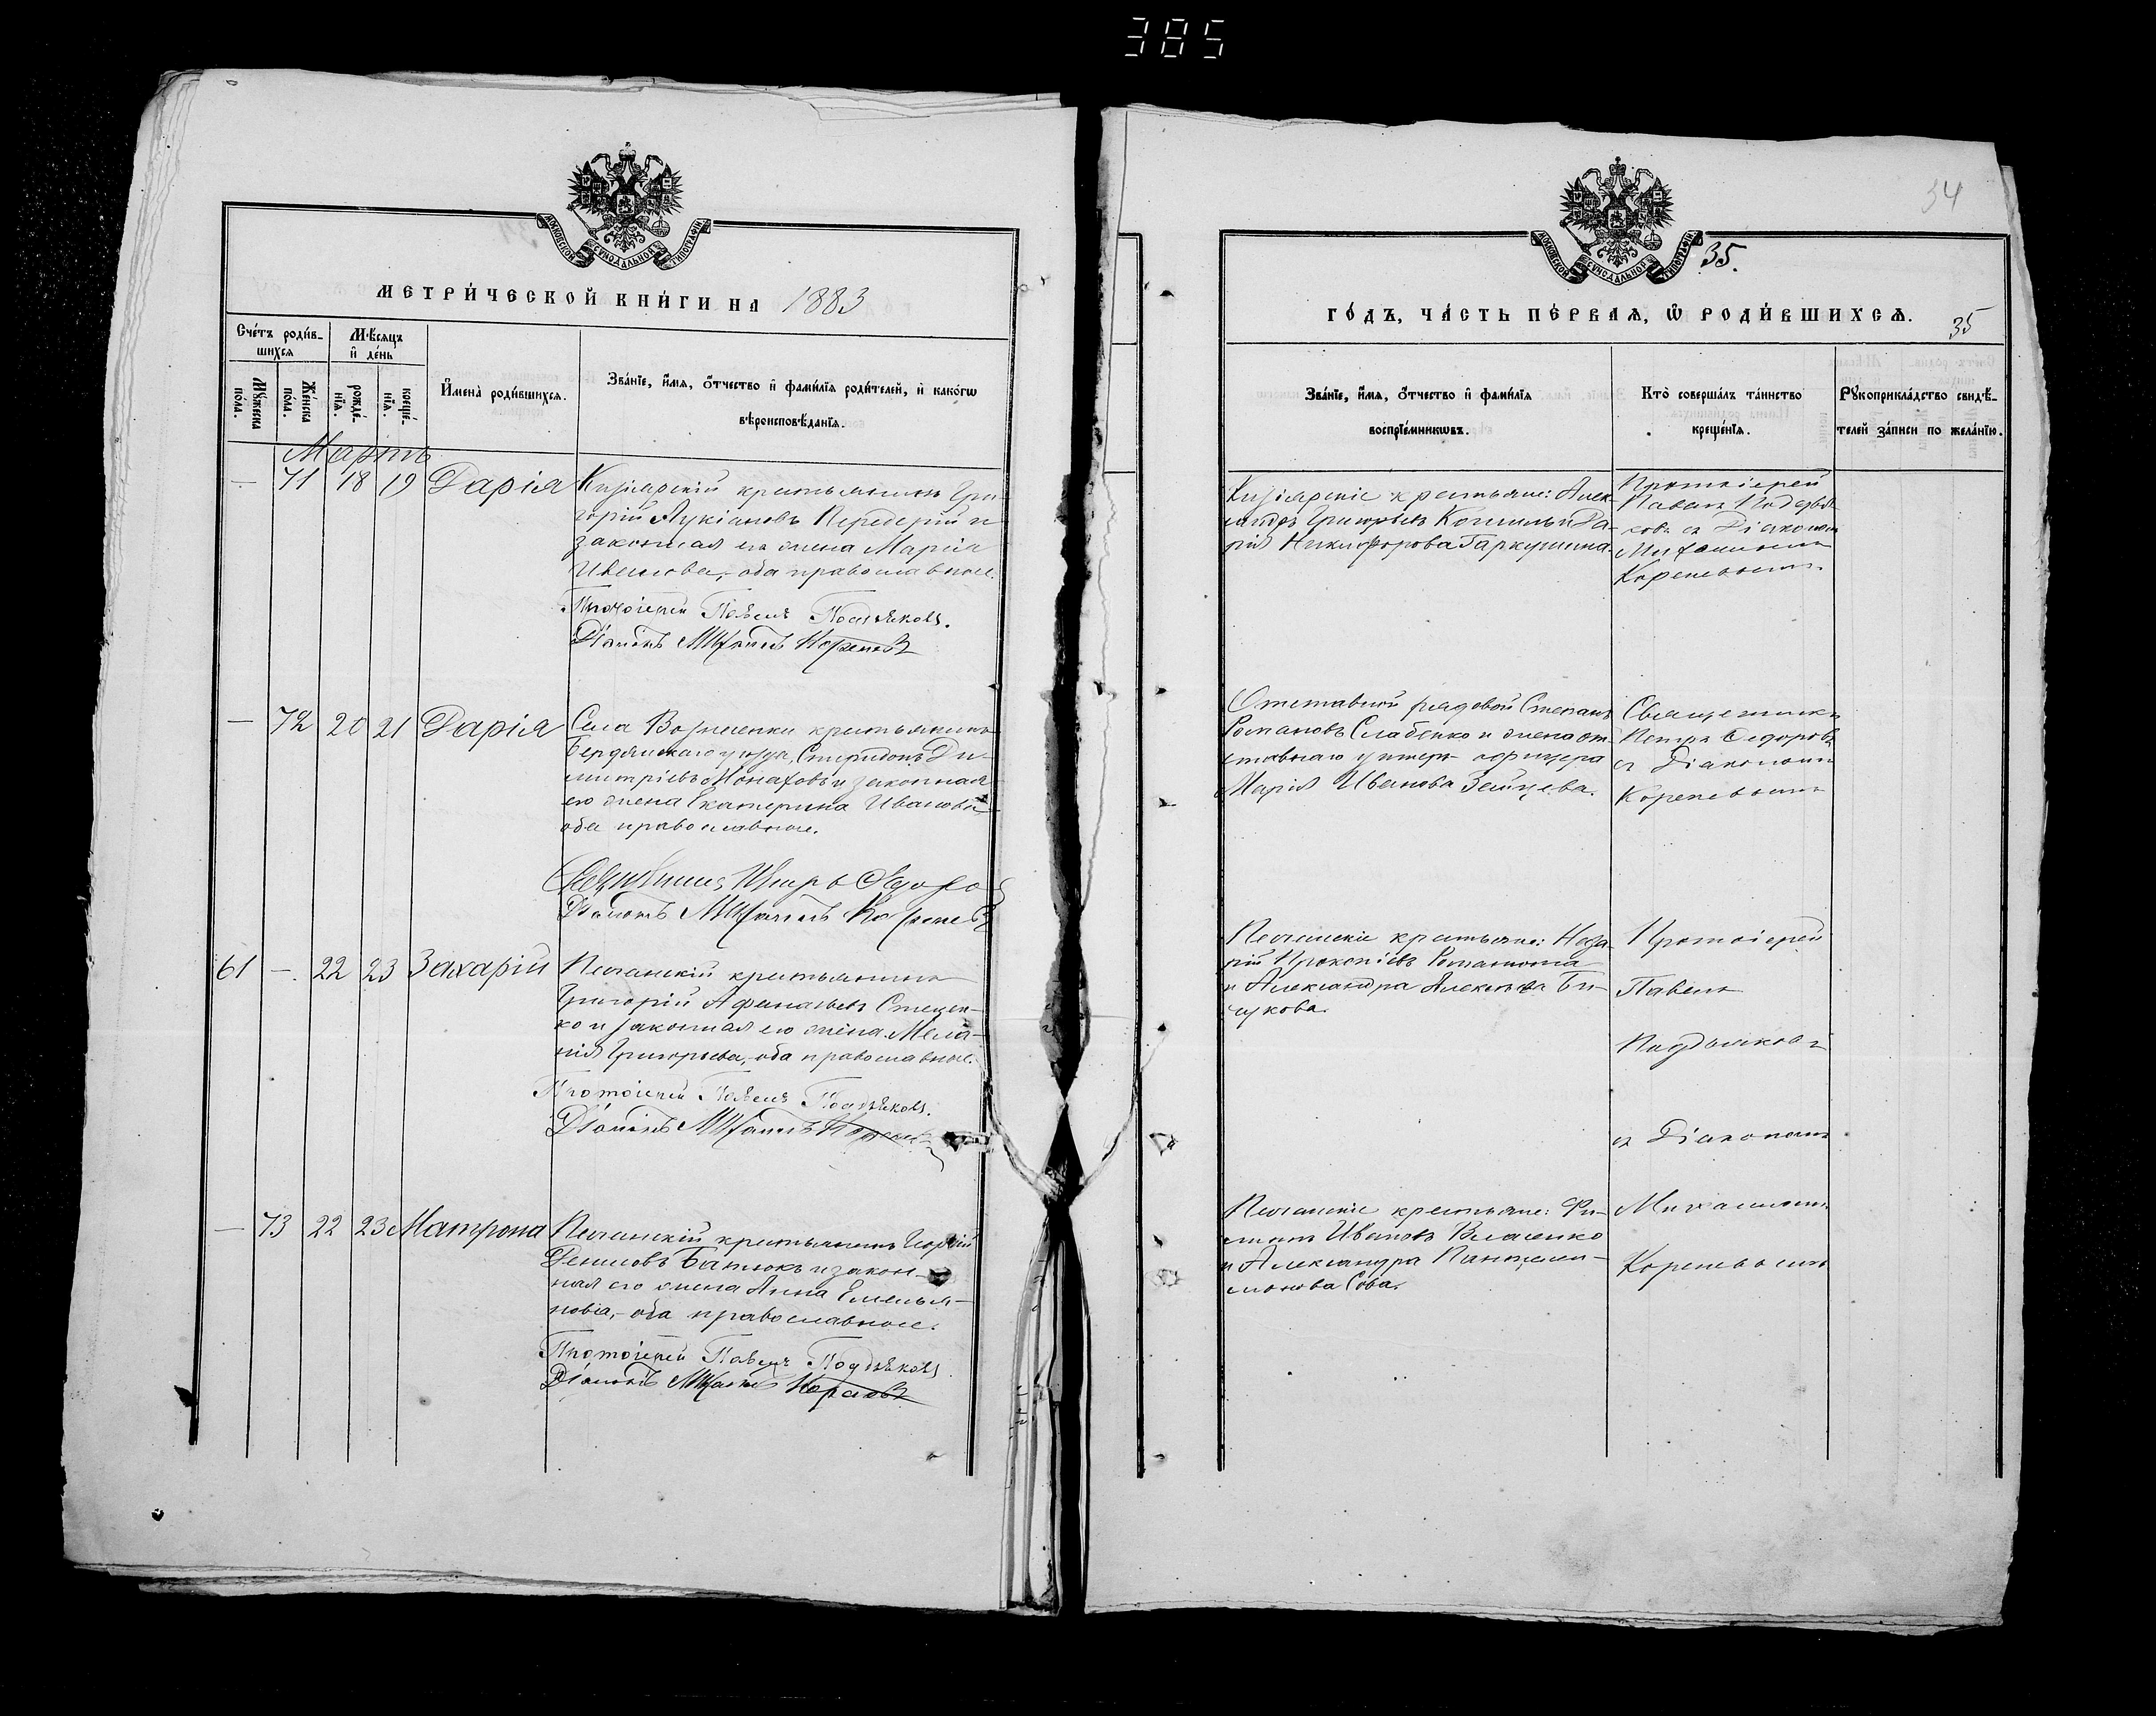 385
34
МОСКОВСКОЙ СѴНОДАЛЬНОЙ ТИПОГРАФІИ
МЕТРИ́ЧЕСКОЙ КНИ́ГИ НА 1883
Сче́тъ роди́в-
шихся
Мѣ́сяцъ
и҆ де́нь
Мꙋ́жеска по́ла.
Же́нска по́ла.
рожде́-
нїѧ.
креще́-
нїѧ.
И҆мена̀ роди́вшихся.
Зва́нїе, и҆́мѧ, ѻ҆́тчество и҆ фами́лїѧ роди́телей, и҆ како́гѡ
вѣроисповѣ́данїѧ.
Мартъ
— 71 18 19 Дарія
Кизіярскій крестьянинъ Гри-
горій Лукіановъ Передерій и
законная его жена Марія
Иванова, оба православные.
Протоіерей Павелъ Подъяковъ.
Діаконъ Михаилъ Кореневъ
— 72 20 21 Дарія
Села Вознесенки крестьянинъ
Бердянскаго уѣзда, Спиридонъ Ди-
митріевъ Монаховъ и законная
его жена Екатерина Иванова
оба православные.
Священникъ Петръ
Діаконъ Михаилъ Кореневъ
61 — 22 23 Захарій
Песчанскій крестьянинъ
Григорій Афанасьевъ Стецен-
ко и законная его жена Мела-
нія Григорьева, оба православные.
Протоіерей Павелъ Подъяковъ.
Діаконъ Михаилъ Кореневъ
— 73 22 23 Матрона
Песчанскій крестьянинъ Георгій
Денисовъ Батюкъ и закон-
ная его жена Анна Емелья-
нова, оба православные.
Протоіерей Павелъ Подъяковъ
Діаконъ Михаилъ Кореневъ
МОСКОВСКОЙ СѴНОДАЛЬНОЙ ТИПОГРАФІИ
35.
ГО́ДЪ, ЧА́СТЬ ПЕ́РВАЯ, Ѽ РОДИ́ВШИХСЯ.
35
Зва́нїе, и҆́мѧ, ѻ҆́тчество и҆ фами́лїѧ
воспрїе́мникѡвъ.
Кто̀ соверша́лъ та́инство
креще́нїѧ.
Рꙋкоприкла́дство свидѣ́-
телей за́писи по жела́нїю.
Кизіярскіе крестьяне: Алек-
сандръ Григорьевъ и Да-
рія Никифорова Гаркушина.
Протоіерей
Павелъ Подъя-
ковъ съ Діакономъ
Михаиломъ
Кореневымъ.
Отставной рядовой Степанъ
Романовъ Слабенко и жена от-
ставнаго унтеръ офицера
Марія Иванова Зайцева.
Священникъ
Петръ Ѳедоровъ
съ Діакономъ
Кореневымъ
Песчанскіе крестьяне: Наза-
рій Прокопіевъ
и Александра
Протоіерей
Павелъ
Подъяковъ
съ Діакономъ
Песчанскіе крестьяне: Фи-
липъ Ивановъ Власенко
и Александра Пантелеи-
монова Сова.
Михаиломъ
Кореневымъ